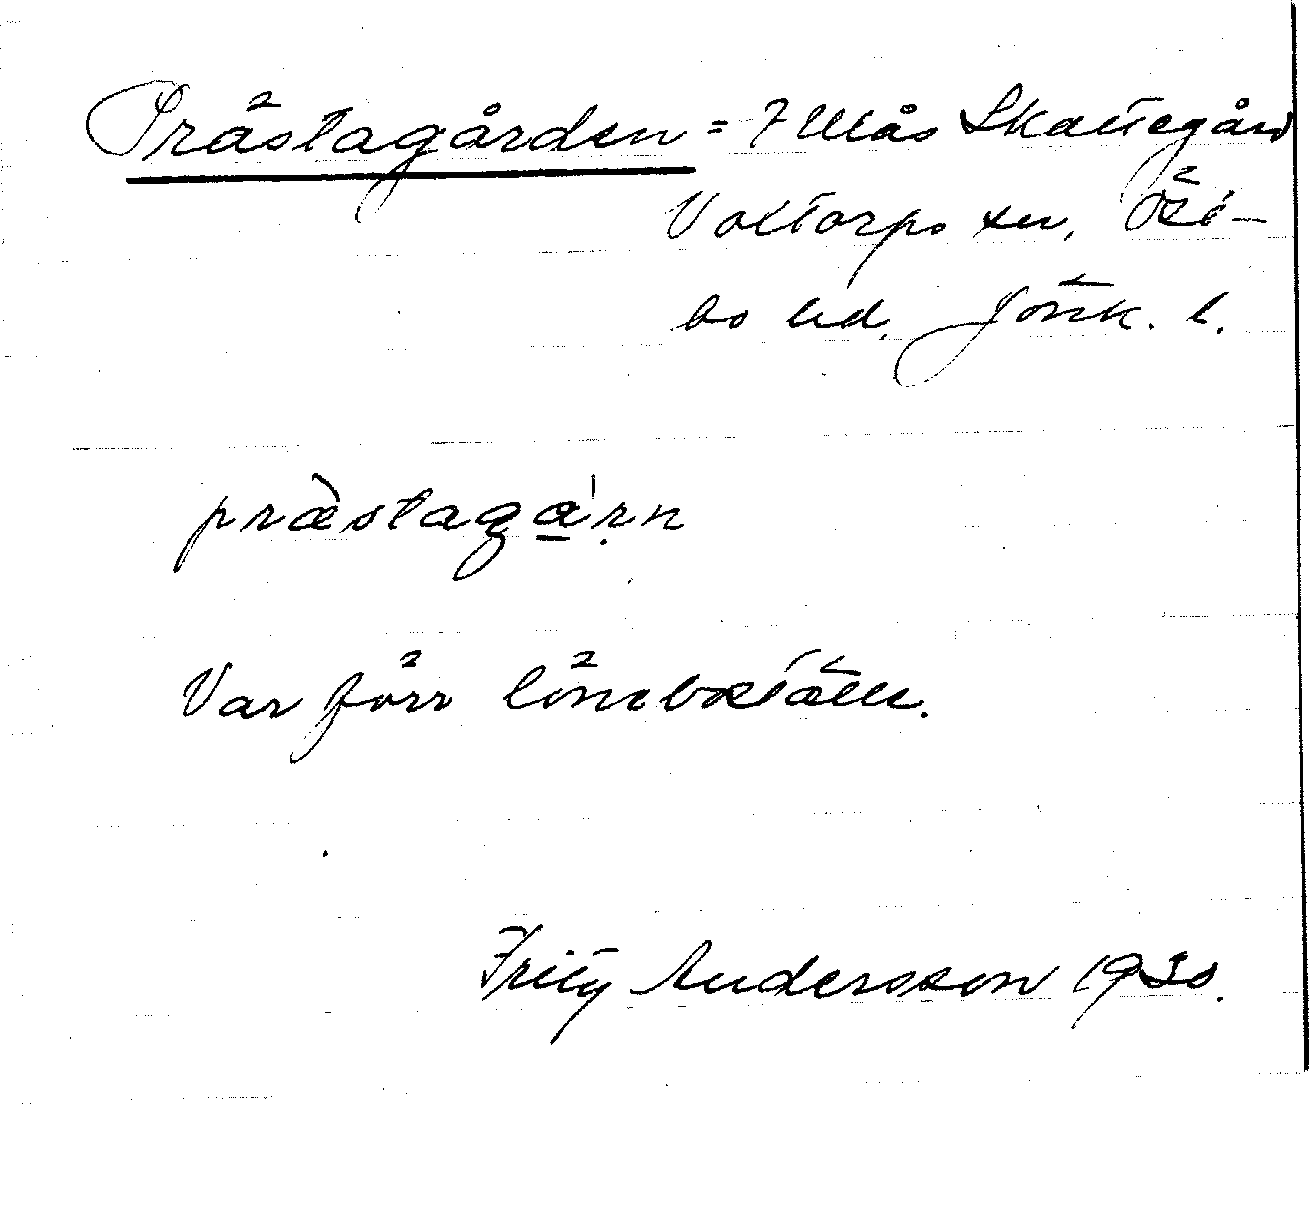 Prästagården = Illås Skattegård
Voxtorps sn, Öst-
bo hd, Jönk. l.
præ̀stagạ'ṛn
Var förr löneboställe.
Fritz Andersson 1930.